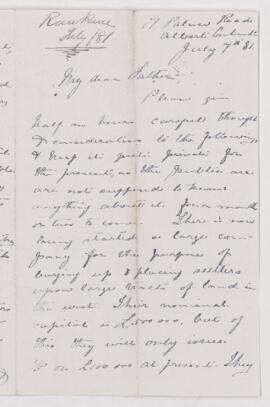 Rankine
July /81
17 Palace Road
Albert
July 7th 81.
My dear Father
Please give
half an hours careful thought
& consideration to the following
& keep it quite private for
the present, as the public are
are not supposed to know
anything about it for a month
or two to come. There is now
being started a large com-
pany for the purpose of
buying up & placing settlers
upon large tracts of land in
the west. Their nominal
capital is £500000, but of
this they will only issue
on £100000 at present. They